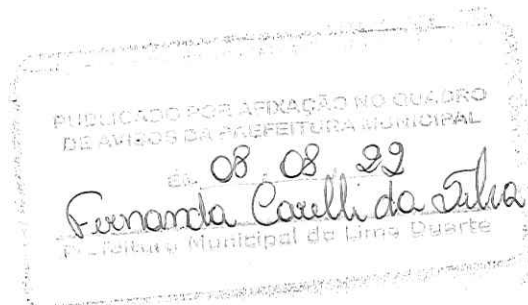 PUBLICADO POR AFIXAÇÃO NO QUADRO
DE AVISOS DA PREFEITURA MUNICIPAL
EM 08 / 08 / 22
Fernanda Carelli da Silva
Prefeitura Municipal de Lima Duarte